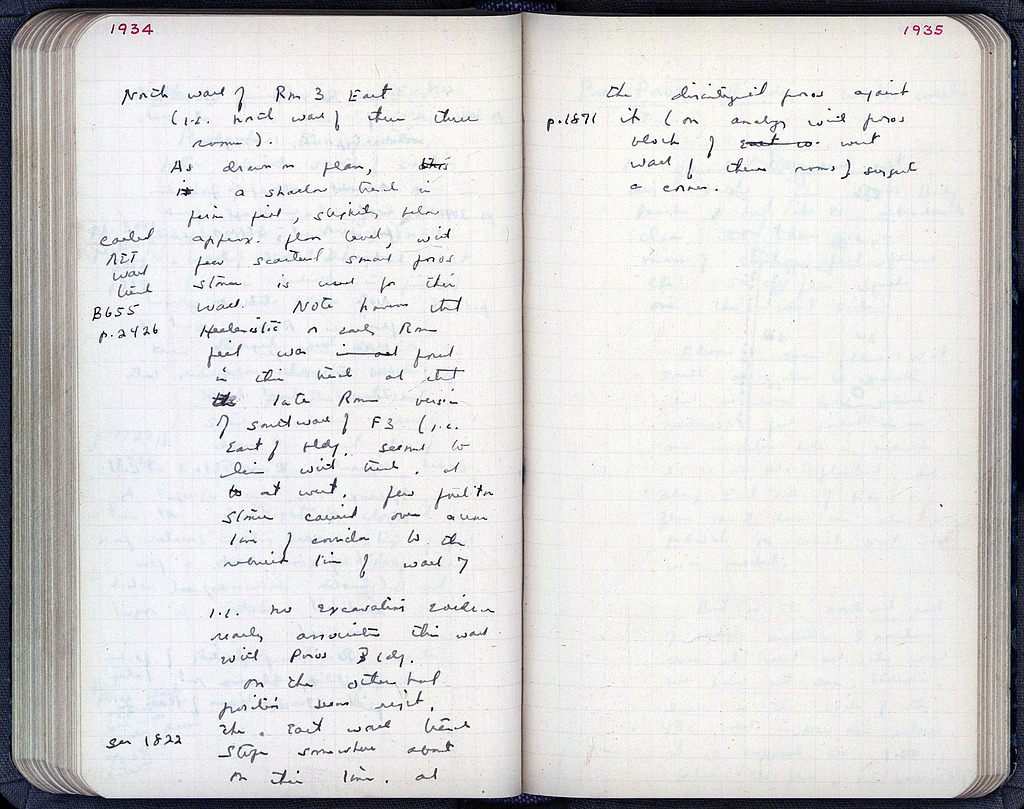 1934
North wall of Rm 3 East
(i.e. north wall of these three
rooms).
As drawn on plan, this
is a shallow trench in
fill, slightly below
approx. floor level, with
few scattered small poros
stones is used for this
wall. Note however that
Hellenistic or early Rom
fill was found
in this trench and that
the late Roman version
of south wall of F3 (i.e.
East of bldg. seems to
line with trench. at
to at west, few
stones carried over across
line of corridor to the
line of wall of
called
wall
trench
B655
p. 2426
i.e. no excavation evidence
really associates this wall
with Poros Bldg.
on the other hand
position seems right.
The East wall trench
see 1822
stops somewhere about
on this line. at
1935
the disintegrated poros against
p. 1871
it (on analogy with poros
block of east w. west
wall of these rooms) suggest
a corner.